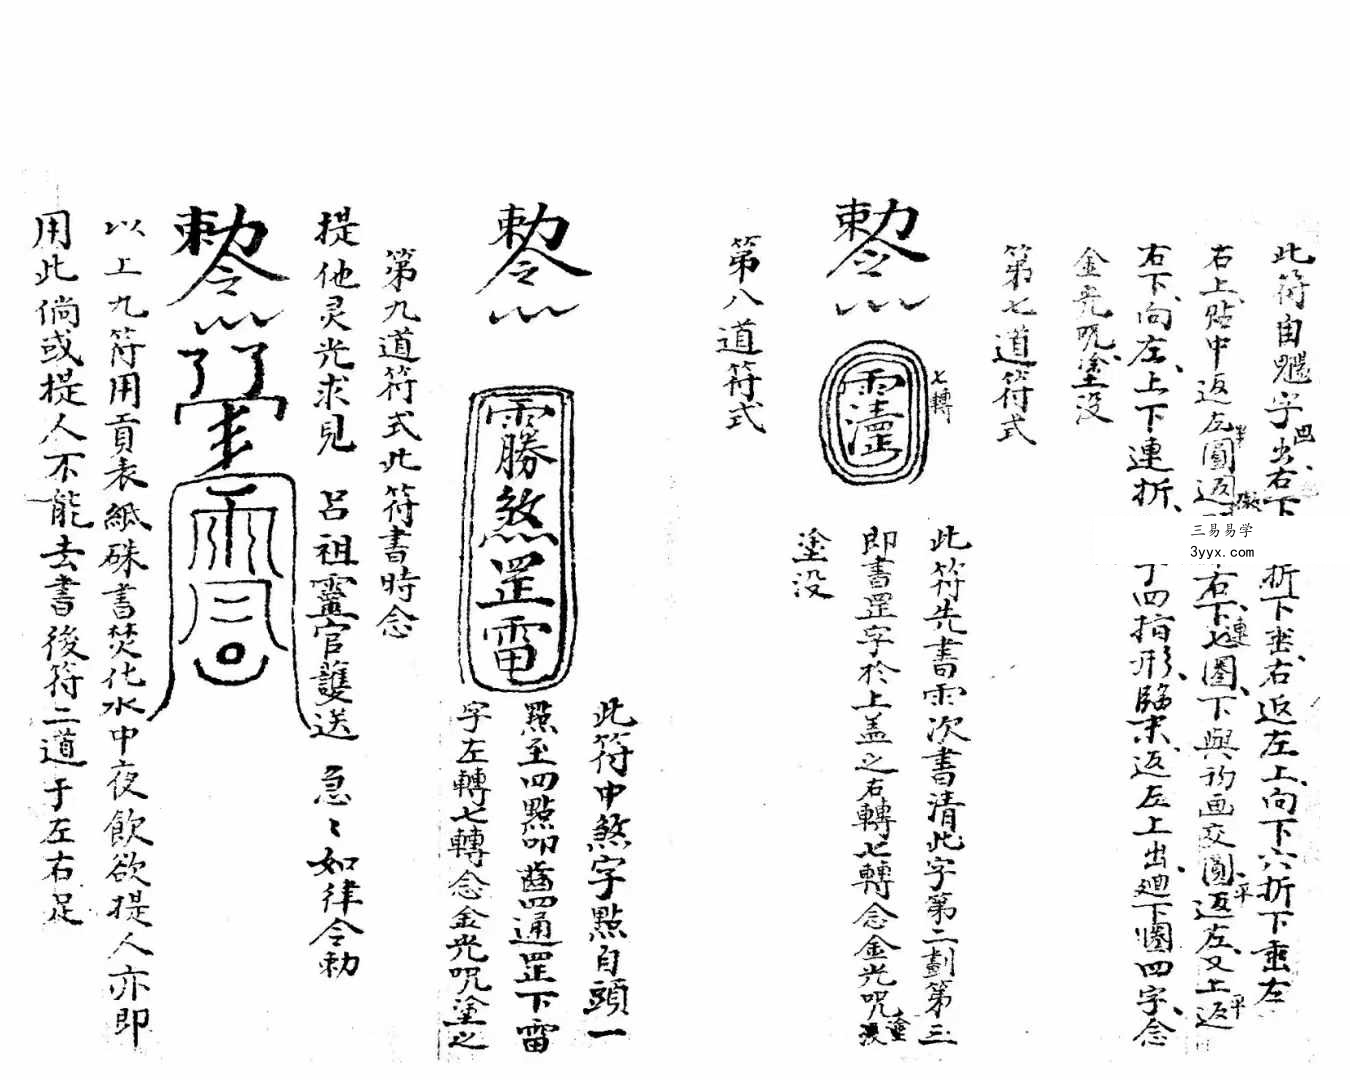 此符自魒字出右下折下垂右返左上向下六折下垂左
凹
右上貼中返左圓返右下七圈下與初画交圓返左又上返
半
礙
連
平
平
右下向左上下連折丁四指形臨末返左上出廻下圈四字念
金光咒塗没
第七道符式
敕令
雨
清
罡
七轉
此符先書雨次書清此字第二劃第三
即書罡字於上盖之右轉七轉念金光咒
塗没
塗没
第八道符式
敕令
雨勝煞罡雷
此符中煞字點自頭一
點至四點叩齒四通罡下雷
字左轉七轉念金光咒塗之
第九道符式此符書時念
提他灵光求見 呂祖靈官護送 急〻如律令勅
敕令
以上九符用貢表紙硃書焚化水中夜飲欲提人亦即
用此倘或提人不能去書後符二道于左右足
三易易学
3yyx.com